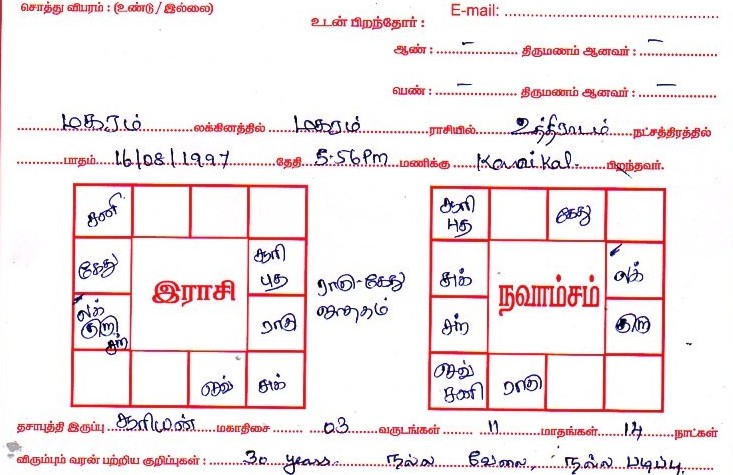 சொத்து விபரம் : (உண்டு / இல்லை)
E-mail:
உடன் பிறந்தோர் :
ஆண் : – திருமணம் ஆனவர் : –
பெண் : – திருமணம் ஆனவர் : –
மகரம் லக்கினத்தில் மகரம் ராசியில் உத்திராடம் நட்சத்திரத்தில்
பாதம் 16/08/1997 தேதி 5.56 Pm மணிக்கு பிறந்தவர்.
சனி
கேது
லக்
குரு
சந்
சூரி
புத
ராகு
செவ்
சுக்
இராசி
ராகு-கேது
ஜாதகம்
சூரி
புத
கேது
சுக்
லக்
சந்
குரு
செவ்
சனி
ராகு
நவாம்சம்
தசாபுத்தி இருப்பு சூரியன் மகாதிசை 03 வருடங்கள் 11 மாதங்கள் 14 நாட்கள்
விரும்பும் வரன் பற்றிய குறிப்புகள் : 30 years நல்ல வேலை, நல்ல படிப்பு